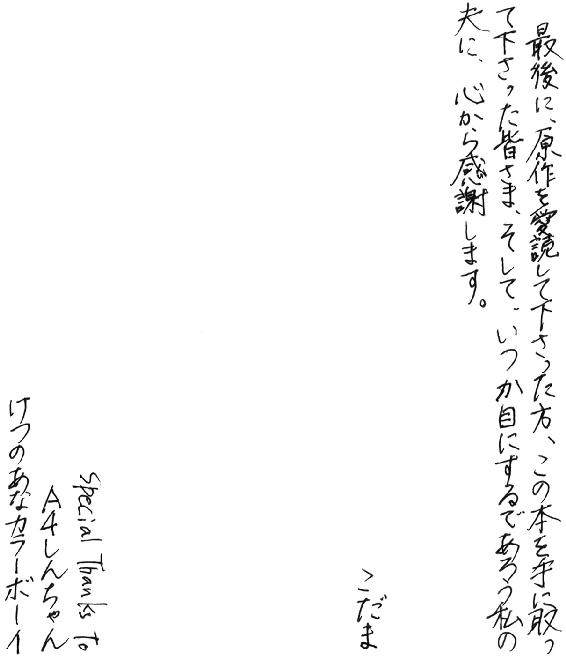 最後に、原作を愛読して下さった方、この本を手に取っ
て下さった皆さま、そして、いつか目にするであろう私の
夫に、心から感謝します。
こだま
Special Thanks to
A4しんちゃん
けつのあなカラーボーイ